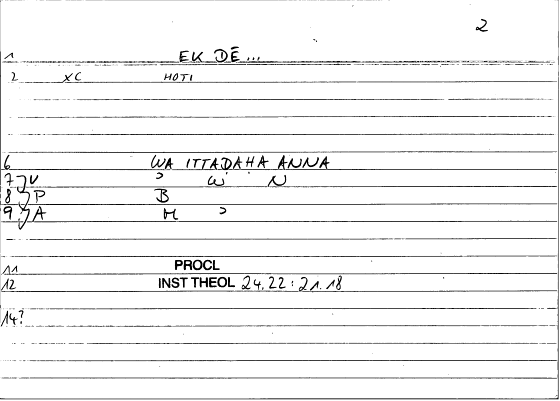 2
1 EK DĒ...
2 XC HOTI
6 WA ITTADAḤA ANNA
7 } V ʾ W N
8 } P B
9 } A M ʾ
11 PROCL
12 INST THEOL 24.22 : 21.18
14?